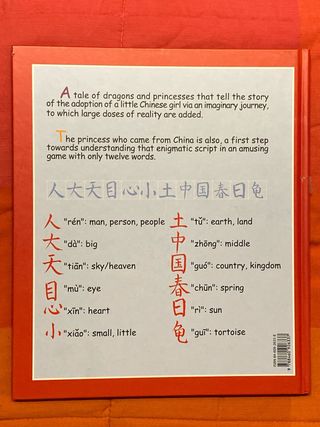 A tale of dragons and princesses that tell the story
of the adoption of a little Chinese girl via an imaginary journey,
to which large doses of reality are added.
The princess who came from China is also, a first step
towards understanding that enigmatic script in an amusing
game with only twelve words.
人大天目心小土中国春日龟
人 "rén": man, person, people
大 "dà": big
天 "tiān": sky/heaven
目 "mù": eye
心 "xīn": heart
小 "xiǎo": small, little
土 "tǔ": earth, land
中 "zhōng": middle
国 "guó": country, kingdom
春 "chūn": spring
日 "rì": sun
龟 "guī": tortoise